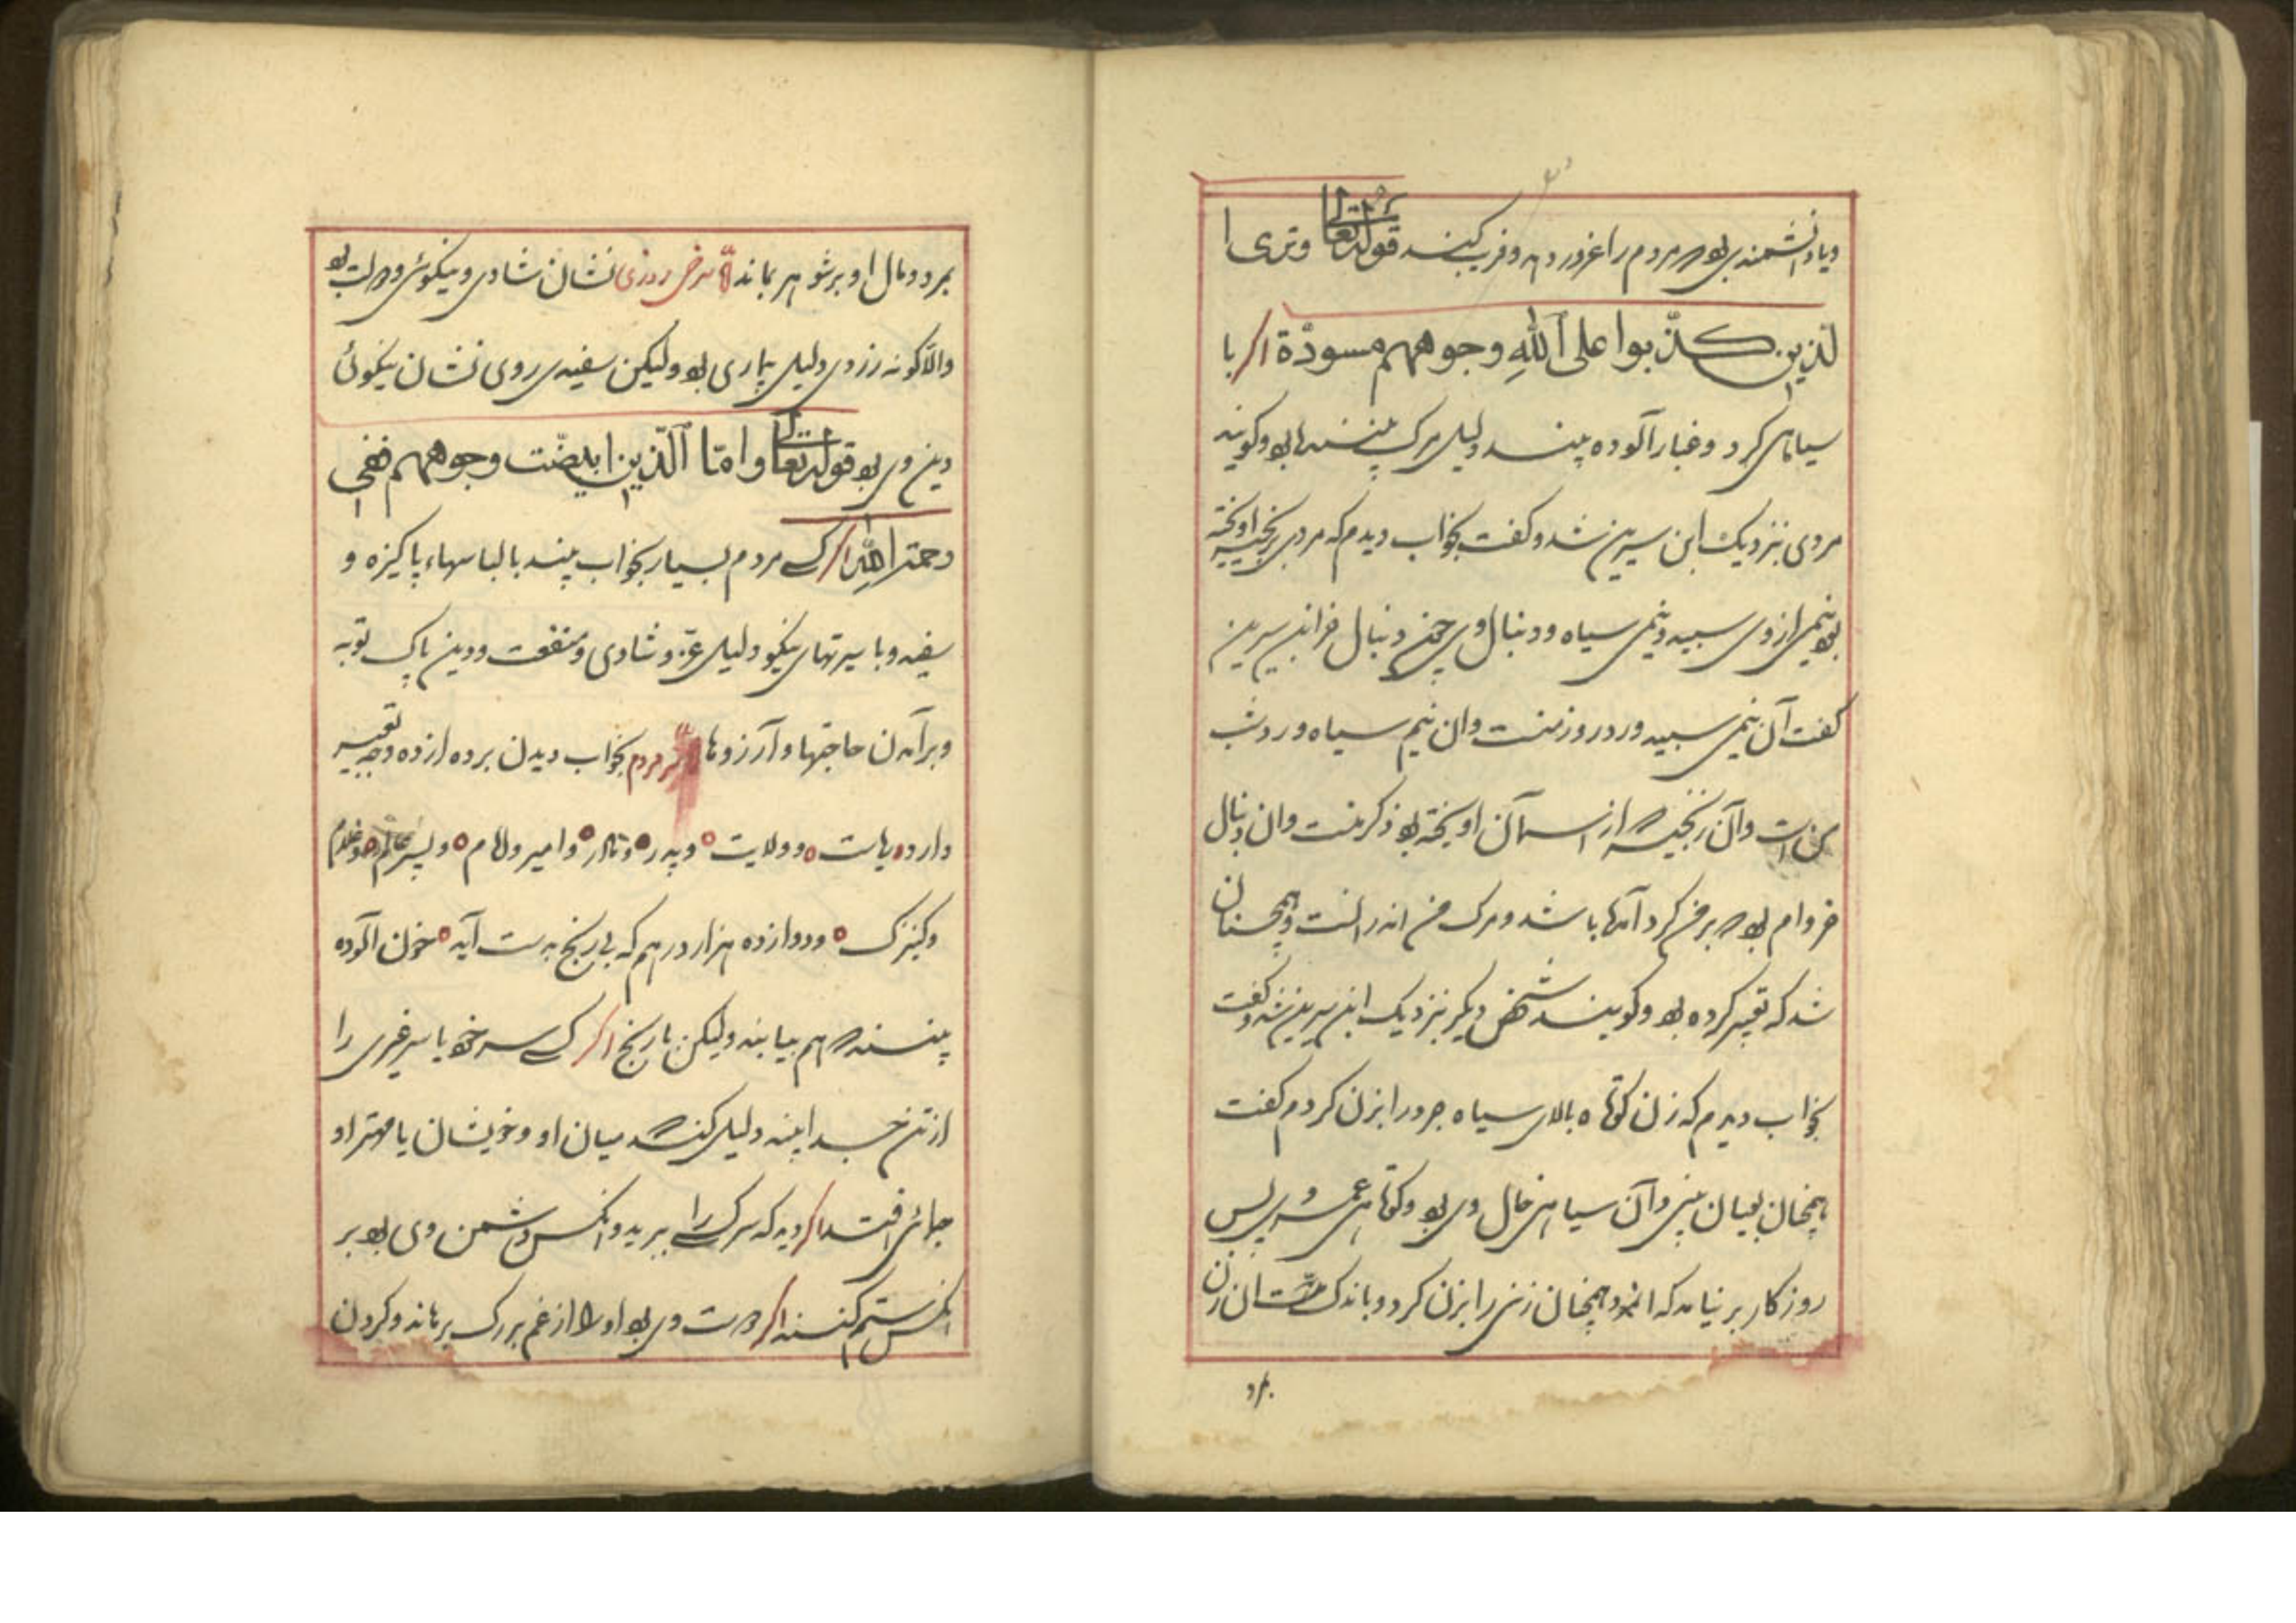 ویا دانشمندی بود مردم را غرور دهد و فریب کند قوله تعالی وتری ا
لذین کذّبوا علی اللهِ وجوههم مسودّة اکر با
سیاهی کرد وغبار آلوده بیند دلیل مرک بیننده بود وکویند
مردی بنزدیک ابن سیرین شد وکفت بخواب دیدم که مردی بزنجیر اویخته
بود نیمی از وی سپید ونیمی سیاه ودنبال وی چون دنبال خر ابن سیرین
کفت آن نیمی سپید ورد روز منست وان نیم سیاه ورد شب
من است وآن زنجیر از آسمان اویخته بود ذکر منست وان دنبال
خر وام بود بر من کرد آمدها باشد ومرک من اندر انست وهمچنان
شد که تعبیر کرده بود وکویند شخص دیکر بنزدیک ابن سیرین شد وکفت
بخواب دیدم که زن کوتاه بالای سیاه جرد را بزن کردم کفت
همچنان بعیان بینی وآن سیاهی مال وی بود وکوتاهی عمر وی پس
روزکار بر نیامد که همچنان زنی را بزن کرد وباندک مدّت ان زن
بمرد ومال او بر شوهر بماند امّا سرخی روزی نشان شادی ونیکوئی بود
والّا کونه زردی دلیل بیماری بود ولیکن سفیدی روی نشان نیکوئی
دین وی بود قوله تعالی وامّا الّذین ابیضّت وجوههم ففی
رحمة اللهِ اکر کسی مردم بسیار بخواب بیند با لباسهاء پاکیزه و
سفید وبا سیرتهای نیکو دلیل عزّ وشادی ومنفعت ودین پاک توبه
وبرآمدن حاجتها وآرزوها امّا سر مردم بخواب دیدن برده ازده وجه تعبیر
دارد ریاست وولایت وپدر ومادر وامیر وامام وپسر عالم وغلام
وکنیزک ودوازده هزار درهم که بی رنج بدست آید خون آلوده
بیننده هم بیابند ولیکن با رنج اکر کسی سر خود یا سر غیری را
از تن جدا بیند دلیل کند میان او وخویشان یا مهتر او
جدائی افتد اکر دید که سر کسی را ببرید وانکس دشمن وی بود بر
انکس ستم کنند اکر دوست وی بود اورا از غم بزرک برهاند وکردن